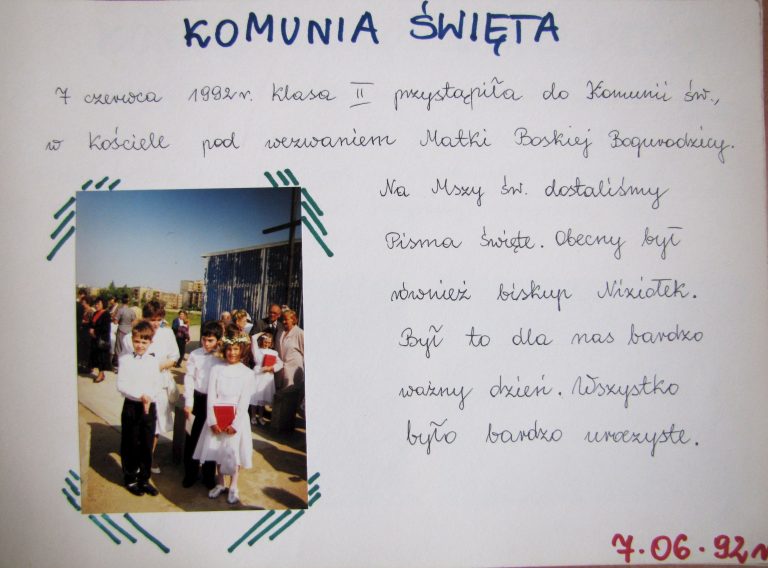 KOMUNIA ŚWIĘTA
7 czerwca 1992r. Klasa II przystąpiła do Komunii św.,
w Kościele pod wezwaniem Matki Boskiej Bogurodzicy.
Na Mszy św. dostaliśmy
Pisma święte. Obecny był
również biskup Niziołek.
Był to dla nas bardzo
ważny dzień. Wszystko
było bardzo uroczyste.
7.06.92r